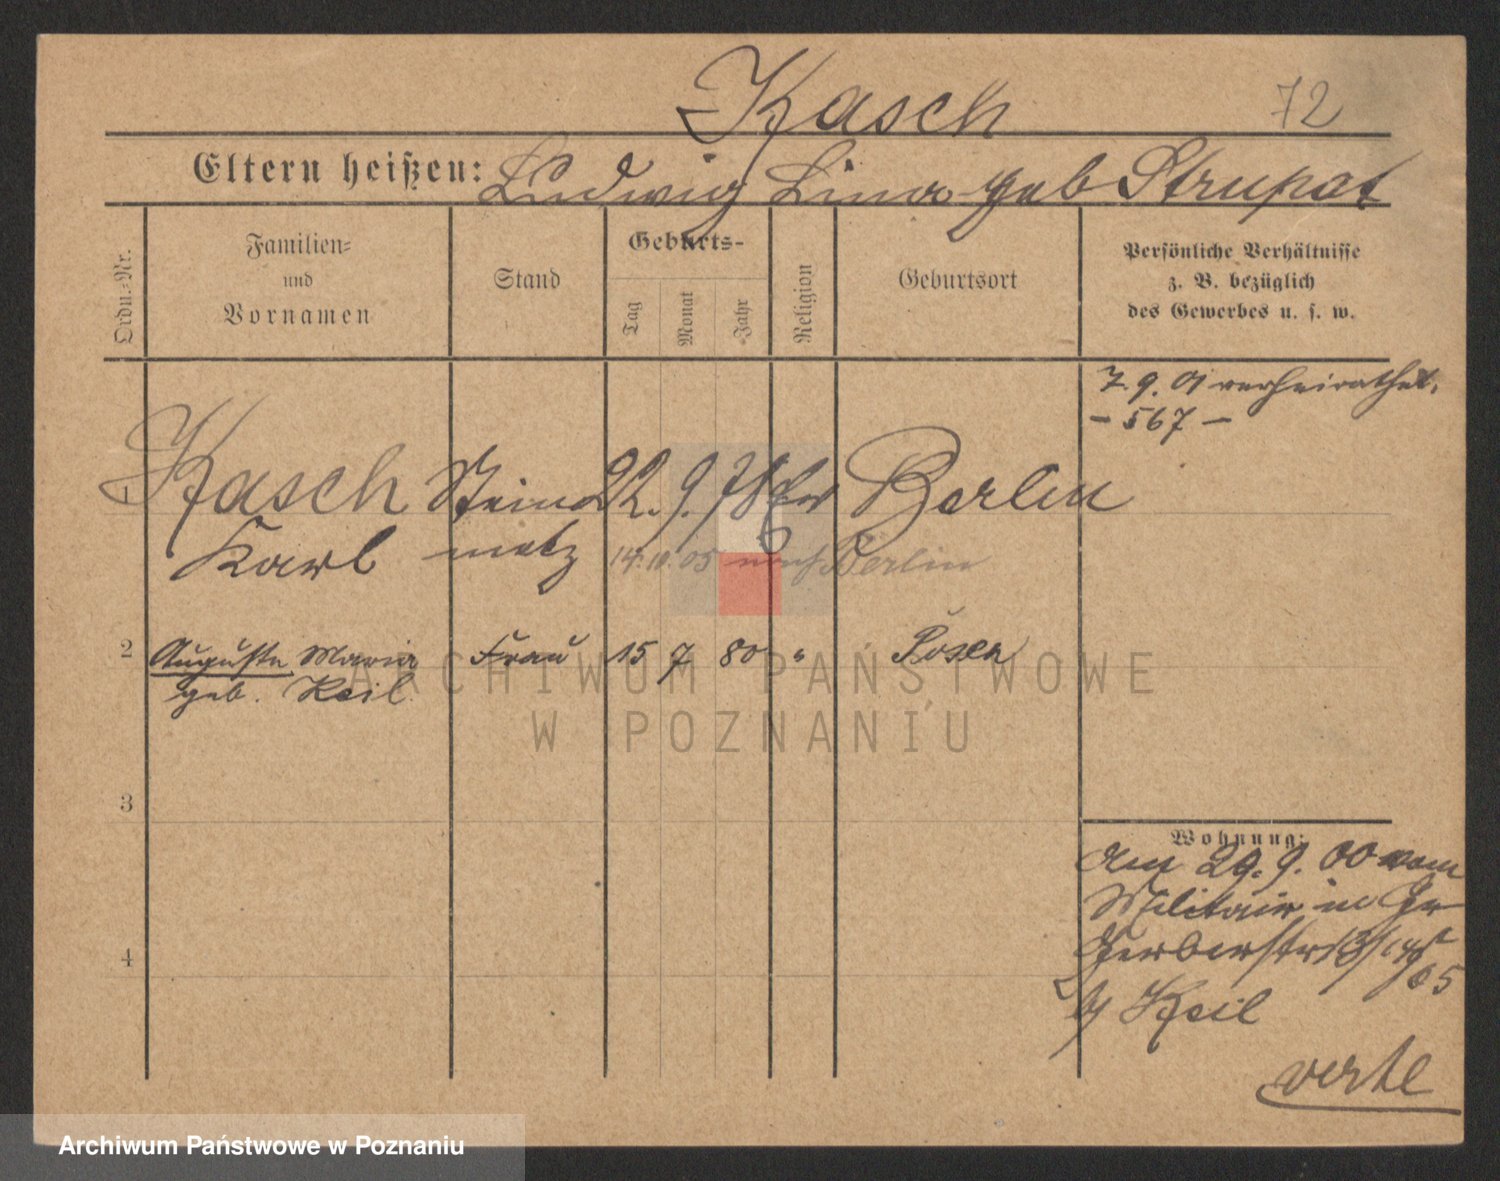 Kasch 72
Eltern heißen: Ludwig Lina geb Strupat
Ordn.-Nr.
Familien-
und
Vornamen
Stand
Geburts-
Tag
Monat
Jahr
Religion
Geburtsort
Persönliche Verhältnisse
z. B. bezüglich
des Gewerbes u. s. w.
7. 9. 01 verheirathet.
– 567 –
1 Kasch Stein 22. 9. 78 Ev Berlin
Karl metz 14. 10. 05 nach Berlin
2 Auguste Maria Frau 15 7 80 " Posen
geb. Keil.
3
4
Wohnung:
Am 29. 9. 00 vom
Militair in Gr
Gerberstr 13
05
b/ Keil
verte
ARCHIWUM PAŃSTWOWE
W POZNANIU
Archiwum Państwowe w Poznaniu